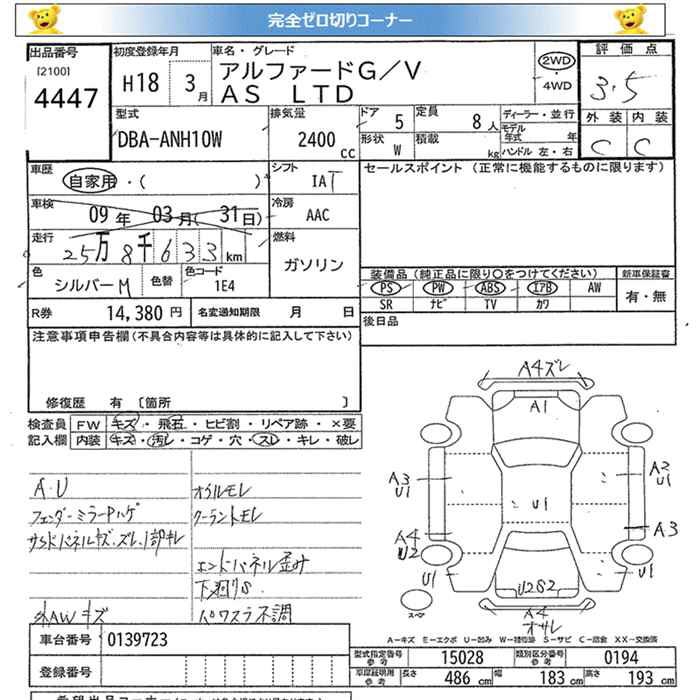 完全ゼロ切りコーナー
出品番号
[2100]
4447
初度登録年月
H18 3月
車名・グレード
アルファードG/V
AS LTD
2WD
・
4WD
評価点
3.5
外装 内装
C C
型式
DBA-ANH10W
排気量
2400 cc
ドア 5
定員 8人
形状 W
積載 kg
ディーラー・並行
モデル年式 年
ハンドル 左・右
車歴
自家用・( )
シフト
IAT
セールスポイント (正常に機能するものに限ります)
車検
09年 03月(31日)
冷房
AAC
走行
25万8千633km
燃料
ガソリン
色
シルバーM
色替
色コード
1E4
装備品(純正品に限り○をつけてください)
PS PW ABS エアB AW
SR ナビ TV カワ
新車保証書
有・無
R券 14,380円
名変通知期限 月 日
後日品
注意事項申告欄(不具合内容等は具体的に記入して下さい)
修復歴 有 〔箇所 〕
検査員記入欄
FW キズ・飛石・ヒビ割・リペア跡・×要
内装 キズ・汚レ・コゲ・穴・スレ・キレ・破レ
A.U
フェンダーミラーPハゲ
サイドパネルキズ、ズレ、1部キレ
外AWキズ
オイルモレ
クーラントモレ
エンドパネル歪み
下廻りS
パワスラ不調
A4ズレ
A1
A3
U1
A2
U1
U1
A4
U2
A3
U1
U1
U2S2
A4
オサレ
スペア
A-キズ E-エクボ U-凹み W-補修跡 S-サビ C-腐食 XX-交換済
車台番号 0139723
登録番号
型式指定番号 参考 15028
類別区分番号 参考 0194
車庫証明用 参考 長さ 486cm 幅 183cm 高さ 193cm